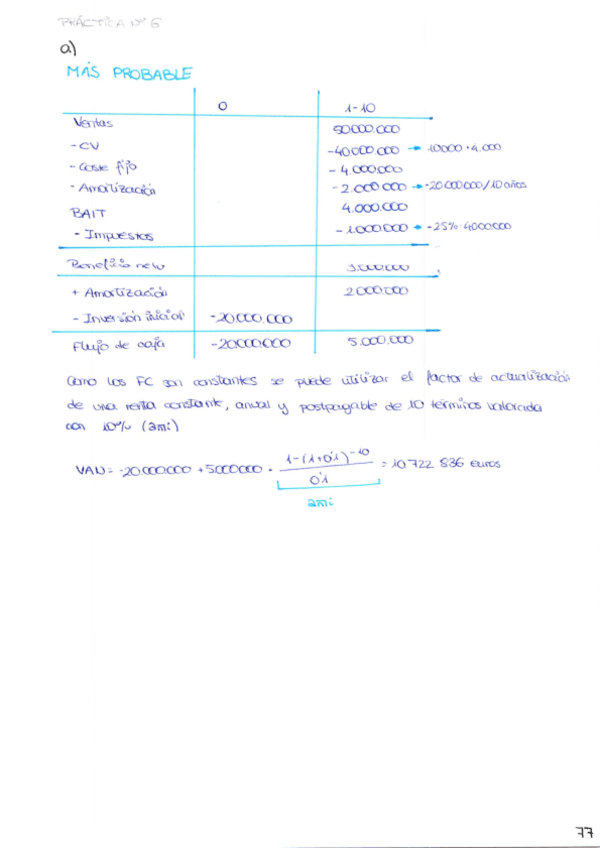 PRÁCTICA Nº 6
a)
MÁS PROBABLE
0 1-10
Ventas 50000.000
- CV -40.000.000 → 10000·4.000
- Coste fijo - 4.000.000
- Amortización -2.000.000 → -20.000.000/10 años
BAIT 4.000.000
- Impuestos -1.000.000 → -25%·4000000
Beneficio neto 3.000.000
+ Amortización 2000.000
- Inversión inicial -20.000.000
Flujo de caja -20000000 5.000.000
Como los FC son constantes se puede utilizar el factor de actualización
de una renta constante, anual y postpagable de 10 términos valorada
con 10% (a10i)
VAN= -20.000000 +5000000 · 1-(1+0'1)^-10 / 0'1 = 10 722 836 euros
77